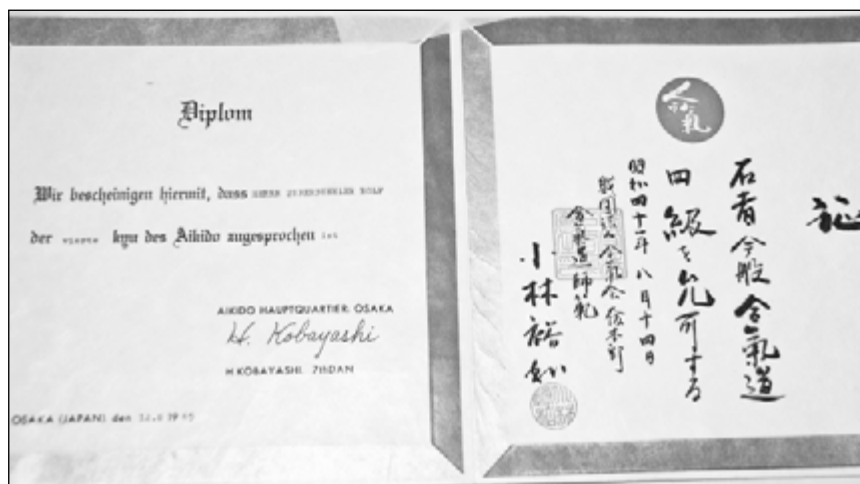 Diplom
Wir bescheinigen hiermit, dass HERR ROLF
der VIERTE kyu des Aikido zugesprochen ist
AIKIDO HAUPTQUARTIER, OSAKA
H. Kobayashi
H KOBAYASHI. 7thDAN
OSAKA (JAPAN) den
証
右者今般合氣道
四級を允可する
昭和四十一年八月十四日
財団法人合氣会
合氣道師範
小林裕和